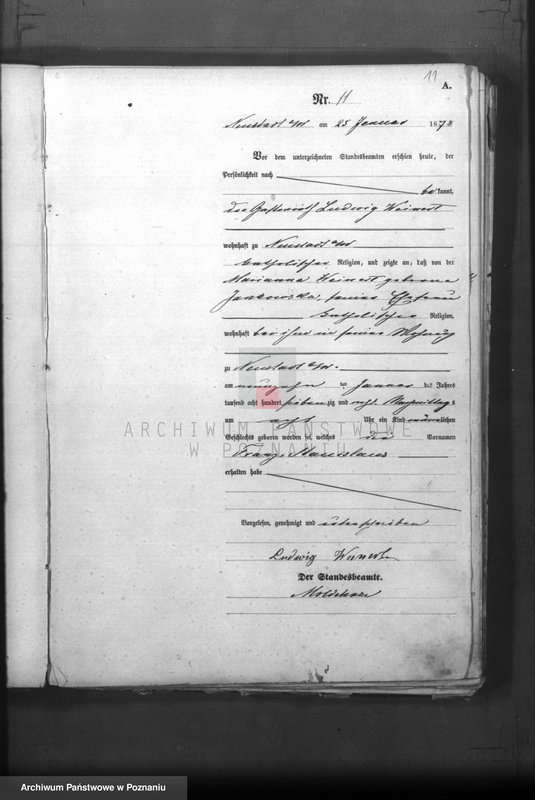 11
A.
Nr. 11
Neustadt a/W am 25 Januar 1878
Vor dem unterzeichneten Standesbeamten erschien heute, der
Persönlichkeit nach
bekannt,
der Gastwirth Ludwig Weinert
wohnhaft zu Neustadt a/W
katholischer Religion, und zeigte an, daß von der
Marianna Weinert geborene
Jankowska, seiner Ehefrau
katholischer Religion,
wohnhaft bei ihm in seiner Wohnung
zu Neustadt a/W.
am neunzehn ten Januar des Jahres
tausend acht hundert siebenzig und acht Nachmittags
um acht Uhr ein Kind männlichen
Geschlechts geboren worden sei, welches die Vornamen
Franz Stanislaus
erhalten habe
ARCHIWUM PAŃSTWOWE
W POZNANIU
Vorgelesen, genehmigt und unterschrieben
Ludwig Weinert
Der Standesbeamte.
Archiwum Państwowe w Poznaniu